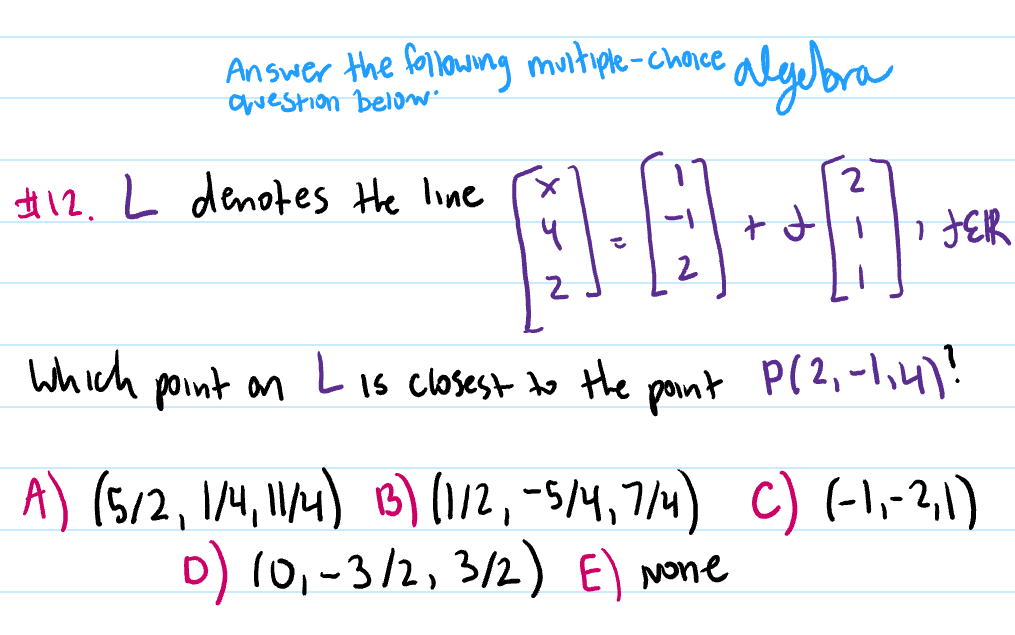 Answer the following multiple-choice algebra
question below.
#12. L denotes the line [x 4 2] = [1 -1 2] + t [2 1 1], t∈ℝ
Which point on L is closest to the point P(2,-1,4)?
A) (5/2, 1/4, 11/4) B) (1/2, -5/4, 7/4) C) (-1,-2,1)
D) (0, -3/2, 3/2) E) none